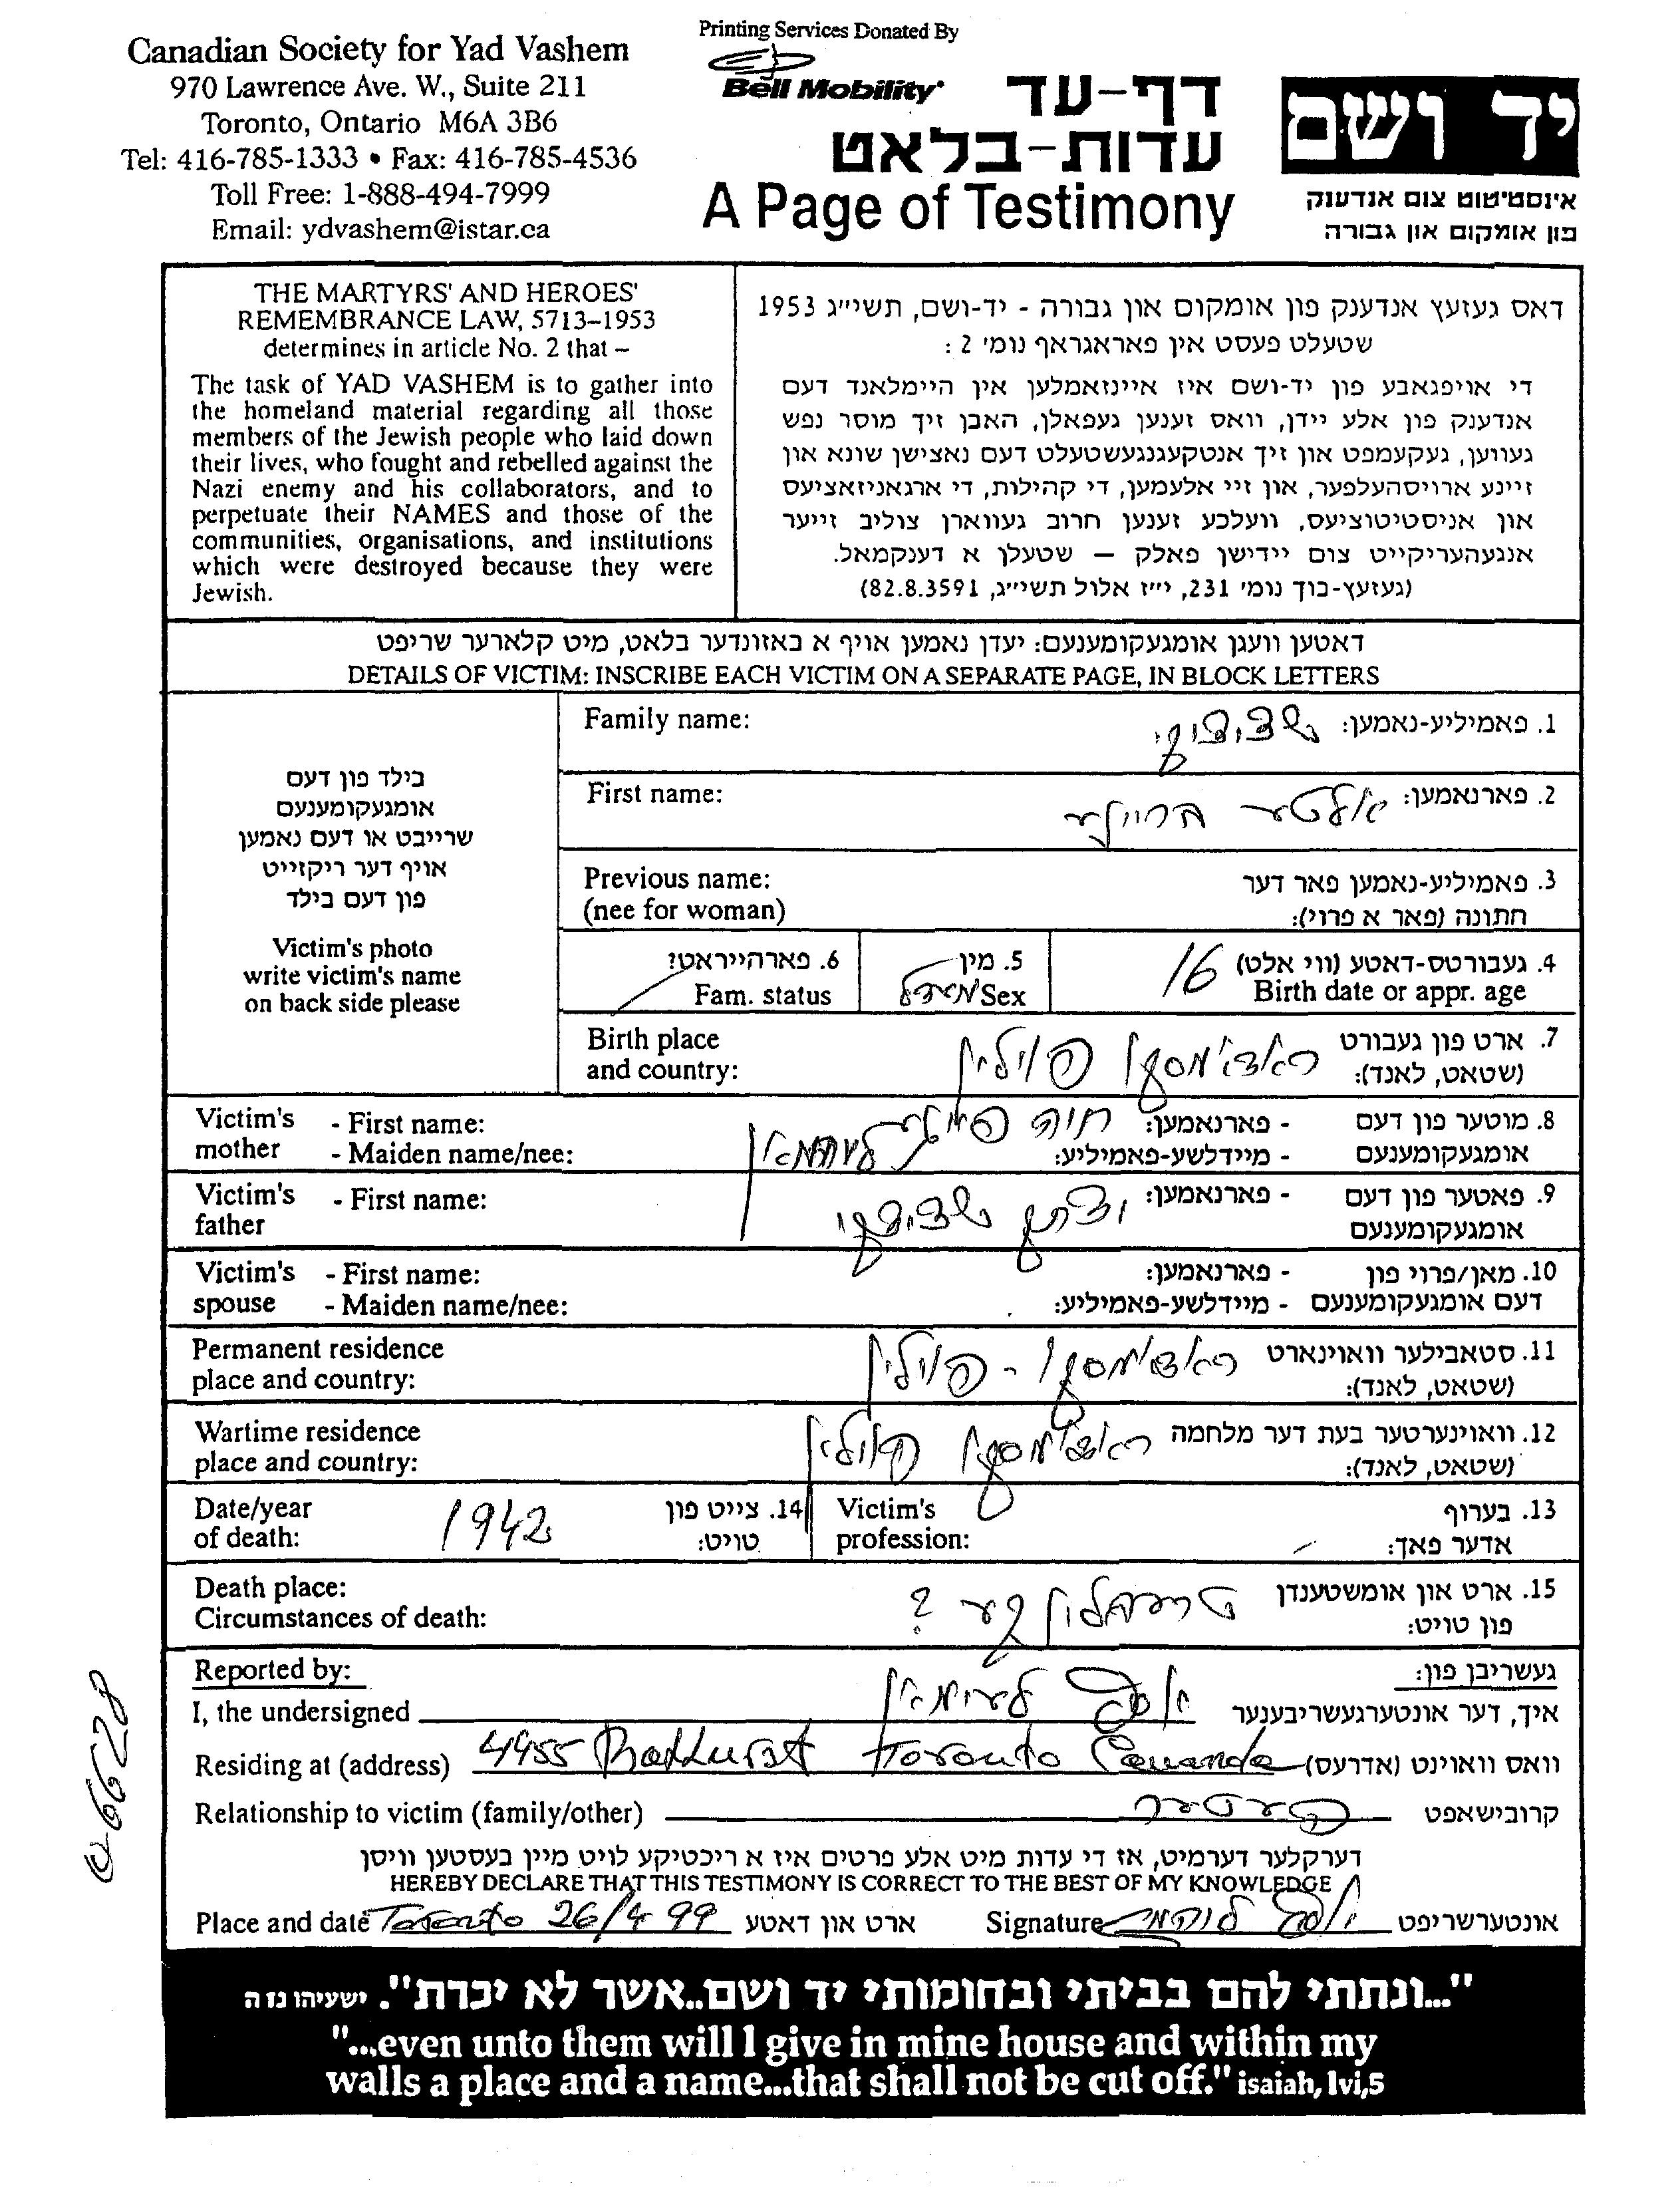 Canadian Society for Yad Vashem
970 Lawrence Ave. W., Suite 211
Toronto, Ontario M6A 3B6
Tel: 416-785-1333 • Fax: 416-785-4536
Toll Free: 1-888-494-7999
Email: ydvashem@istar.ca
Printing Services Donated By
Bell Mobility
דף-עד
עדות-בלאט
A Page of Testimony
יד ושם
אינסטיטוט צום אנדענק
פון אומקום און גבורה
THE MARTYRS' AND HEROES'
REMEMBRANCE LAW, 5713–1953
determines in article No. 2 that –
The task of YAD VASHEM is to gather into
the homeland material regarding all those
members of the Jewish people who laid down
their lives, who fought and rebelled against the
Nazi enemy and his collaborators, and to
perpetuate their NAMES and those of the
communities, organisations, and institutions
which were destroyed because they were
Jewish.
דאס געזעץ אנדענק פון אומקום און גבורה - יד-ושם, תשי״ג 1953
שטעלט פעסט אין פאראגראף נומ׳ 2 :
די אויפגאבע פון יד-ושם איז איינזאמלען אין היימלאנד דעם
אנדענק פון אלע יידן, וואס זענען געפאלן, האבן זיך מוסר נפש
געווען, געקעמפט און זיך אנטקעגנגעשטעלט דעם נאצישן שונא און
זיינע ארויסהעלפער, און זיי אלעמען, די קהילות, די ארגאניזאציעס
און אניסטיטוציעס, וועלכע זענען חרוב געווארן צוליב זייער
אנגעהעריקייט צום יידישן פאלק — שטעלן א דענקמאל.
(געזעץ-בוך נומ׳ 231, י״ז אלול תשי״ג, 82.8.3591)
דאטען וועגן אומגעקומענעם: יעדן נאמען אויף א באזונדער בלאט, מיט קלארער שריפט
DETAILS OF VICTIM: INSCRIBE EACH VICTIM ON A SEPARATE PAGE, IN BLOCK LETTERS
בילד פון דעם
אומגעקומענעם
שרייבט או דעם נאמען
אויף דער ריקזייט
פון דעם בילד
Victim's photo
write victim's name
on back side please
Family name: 1. פאמיליע-נאמען:
First name: 2. פארנאמען: אלטער
Previous name: 3. פאמיליע-נאמען פאר דער
(nee for woman) חתונה (פאר א פרוי):
6. פארהייראט? 5. מין 4. געבורטס-דאטע (ווי אלט) 16
Fam. status Sex Birth date or appr. age
Birth place 7. ארט פון געבורט ראדאמסקו פוילין
and country: (שטאט, לאנד):
Victim's - First name: - פארנאמען: חוה 8. מוטער פון דעם
mother - Maiden name/nee: - מיידלשע-פאמיליע: אומגעקומענעם
Victim's - First name: - פארנאמען: יצחק 9. פאטער פון דעם
father אומגעקומענעם
Victim's - First name: - פארנאמען: 10. מאן/פרוי פון
spouse - Maiden name/nee: - מיידלשע-פאמיליע: דעם אומגעקומענעם
Permanent residence 11. סטאבילער וואוינארט ראדאמסקו - פוילין
place and country: (שטאט, לאנד):
Wartime residence 12. וואוינערטער בעת דער מלחמה ראדאמסקו פוילין
place and country: (שטאט, לאנד):
Date/year 1942 14. צייט פון Victim's 13. בערוף
of death: טויט: profession: אדער פאך:
Death place: 15. ארט און אומשטענדן ?
Circumstances of death: פון טויט:
Reported by: געשריבן פון:
I, the undersigned יוסף איך, דער אונטערגעשריבענער
Residing at (address) 4955 Bathurst Toronto Cananda וואס וואוינט (אדרעס)
Relationship to victim (family/other) קרובישאפט
דערקלער דערמיט, אז די עדות מיט אלע פרטים איז א ריכטיקע לויט מיין בעסטען וויסן
HEREBY DECLARE THAT THIS TESTIMONY IS CORRECT TO THE BEST OF MY KNOWLEDGE
Place and date Toronto 26/4 99 ארט און דאטע Signature יוסף אונטערשריפט
"...ונתתי להם בביתי ובחומותי יד ושם..אשר לא יכרת". ישעיהו נז ה
"...even unto them will I give in mine house and within my
walls a place and a name...that shall not be cut off." isaiah, lvi,5